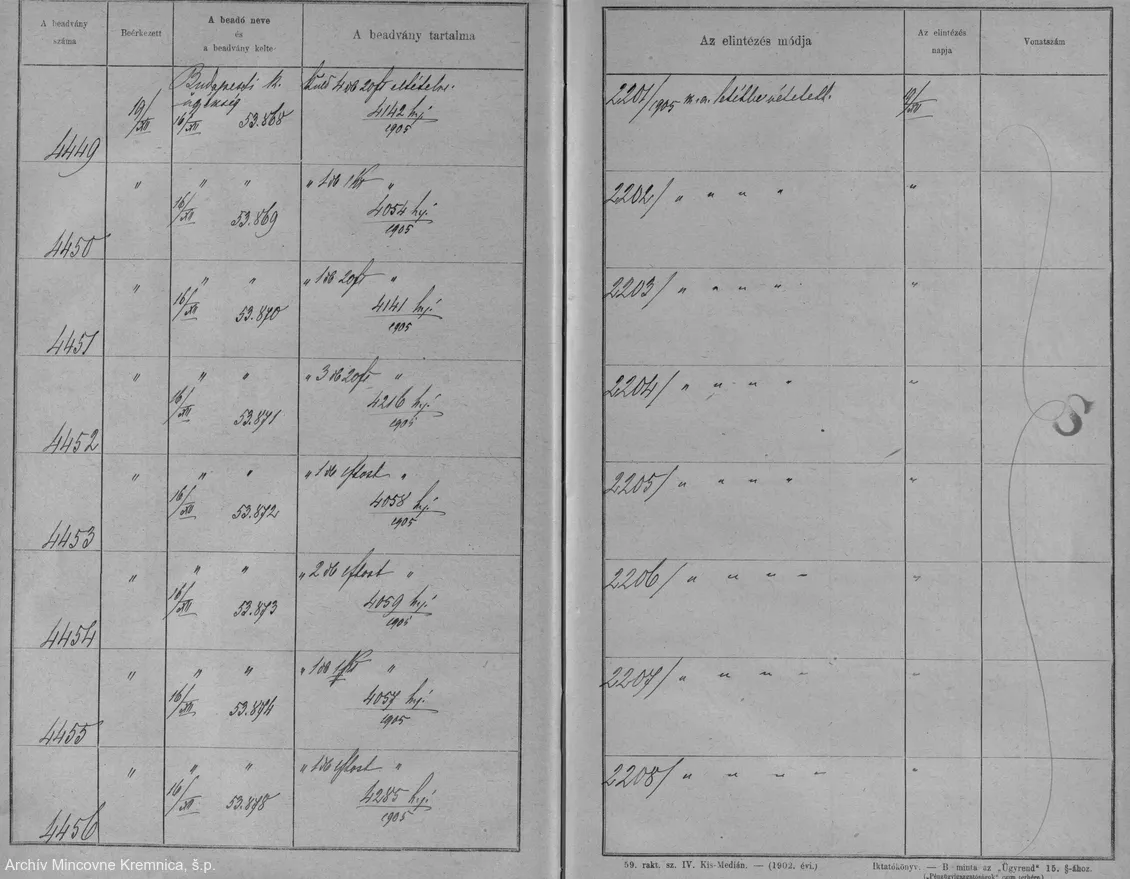 A beadvány
száma
Beérkezett
A beadó neve
és
a beadvány kelte
A beadvány tartalma
Az elintézés módja
Az elintézés
napja
Vonatszám
4449
19/XII
Budapesti k.
ügyészség
16/XII 53.868
Küld 4 db 20f
4142 hj.
1905
2201/1905 letétbe vétetett.
19/XII
4450
"
" "
16/XII 53.869
" 1 db 1 Kr "
4054 hj.
1905
2202/ " " " "
"
4451
"
" "
16/XII 53.870
" 1 db 20f "
4141 hj.
1905
2203/ " " " "
"
4452
"
" "
16/XII 53.871
" 3 db 20f "
4216 hj.
1905
2204/ " " " "
"
4453
"
" "
16/XII 53.872
" 1 db "
4058 hj.
1905
2205/ " " " "
"
4454
"
" "
16/XII 53.873
" 2 db "
4059 hj.
1905
2206/ " " " "
"
4455
"
" "
16/XII 53.874
" 1 db "
4057 hj.
1905
2207/ " " " "
"
4456
"
" "
16/XII 53.878
" 1 db "
4285 hj.
1905
2208/ " " " "
"
59. rakt. sz. IV. Kis-Medián. — (1902. évi.)
Iktatókönyv. — B minta az „Ügyrend" 15. §-ához.
Archív Mincovne Kremnica, š.p.